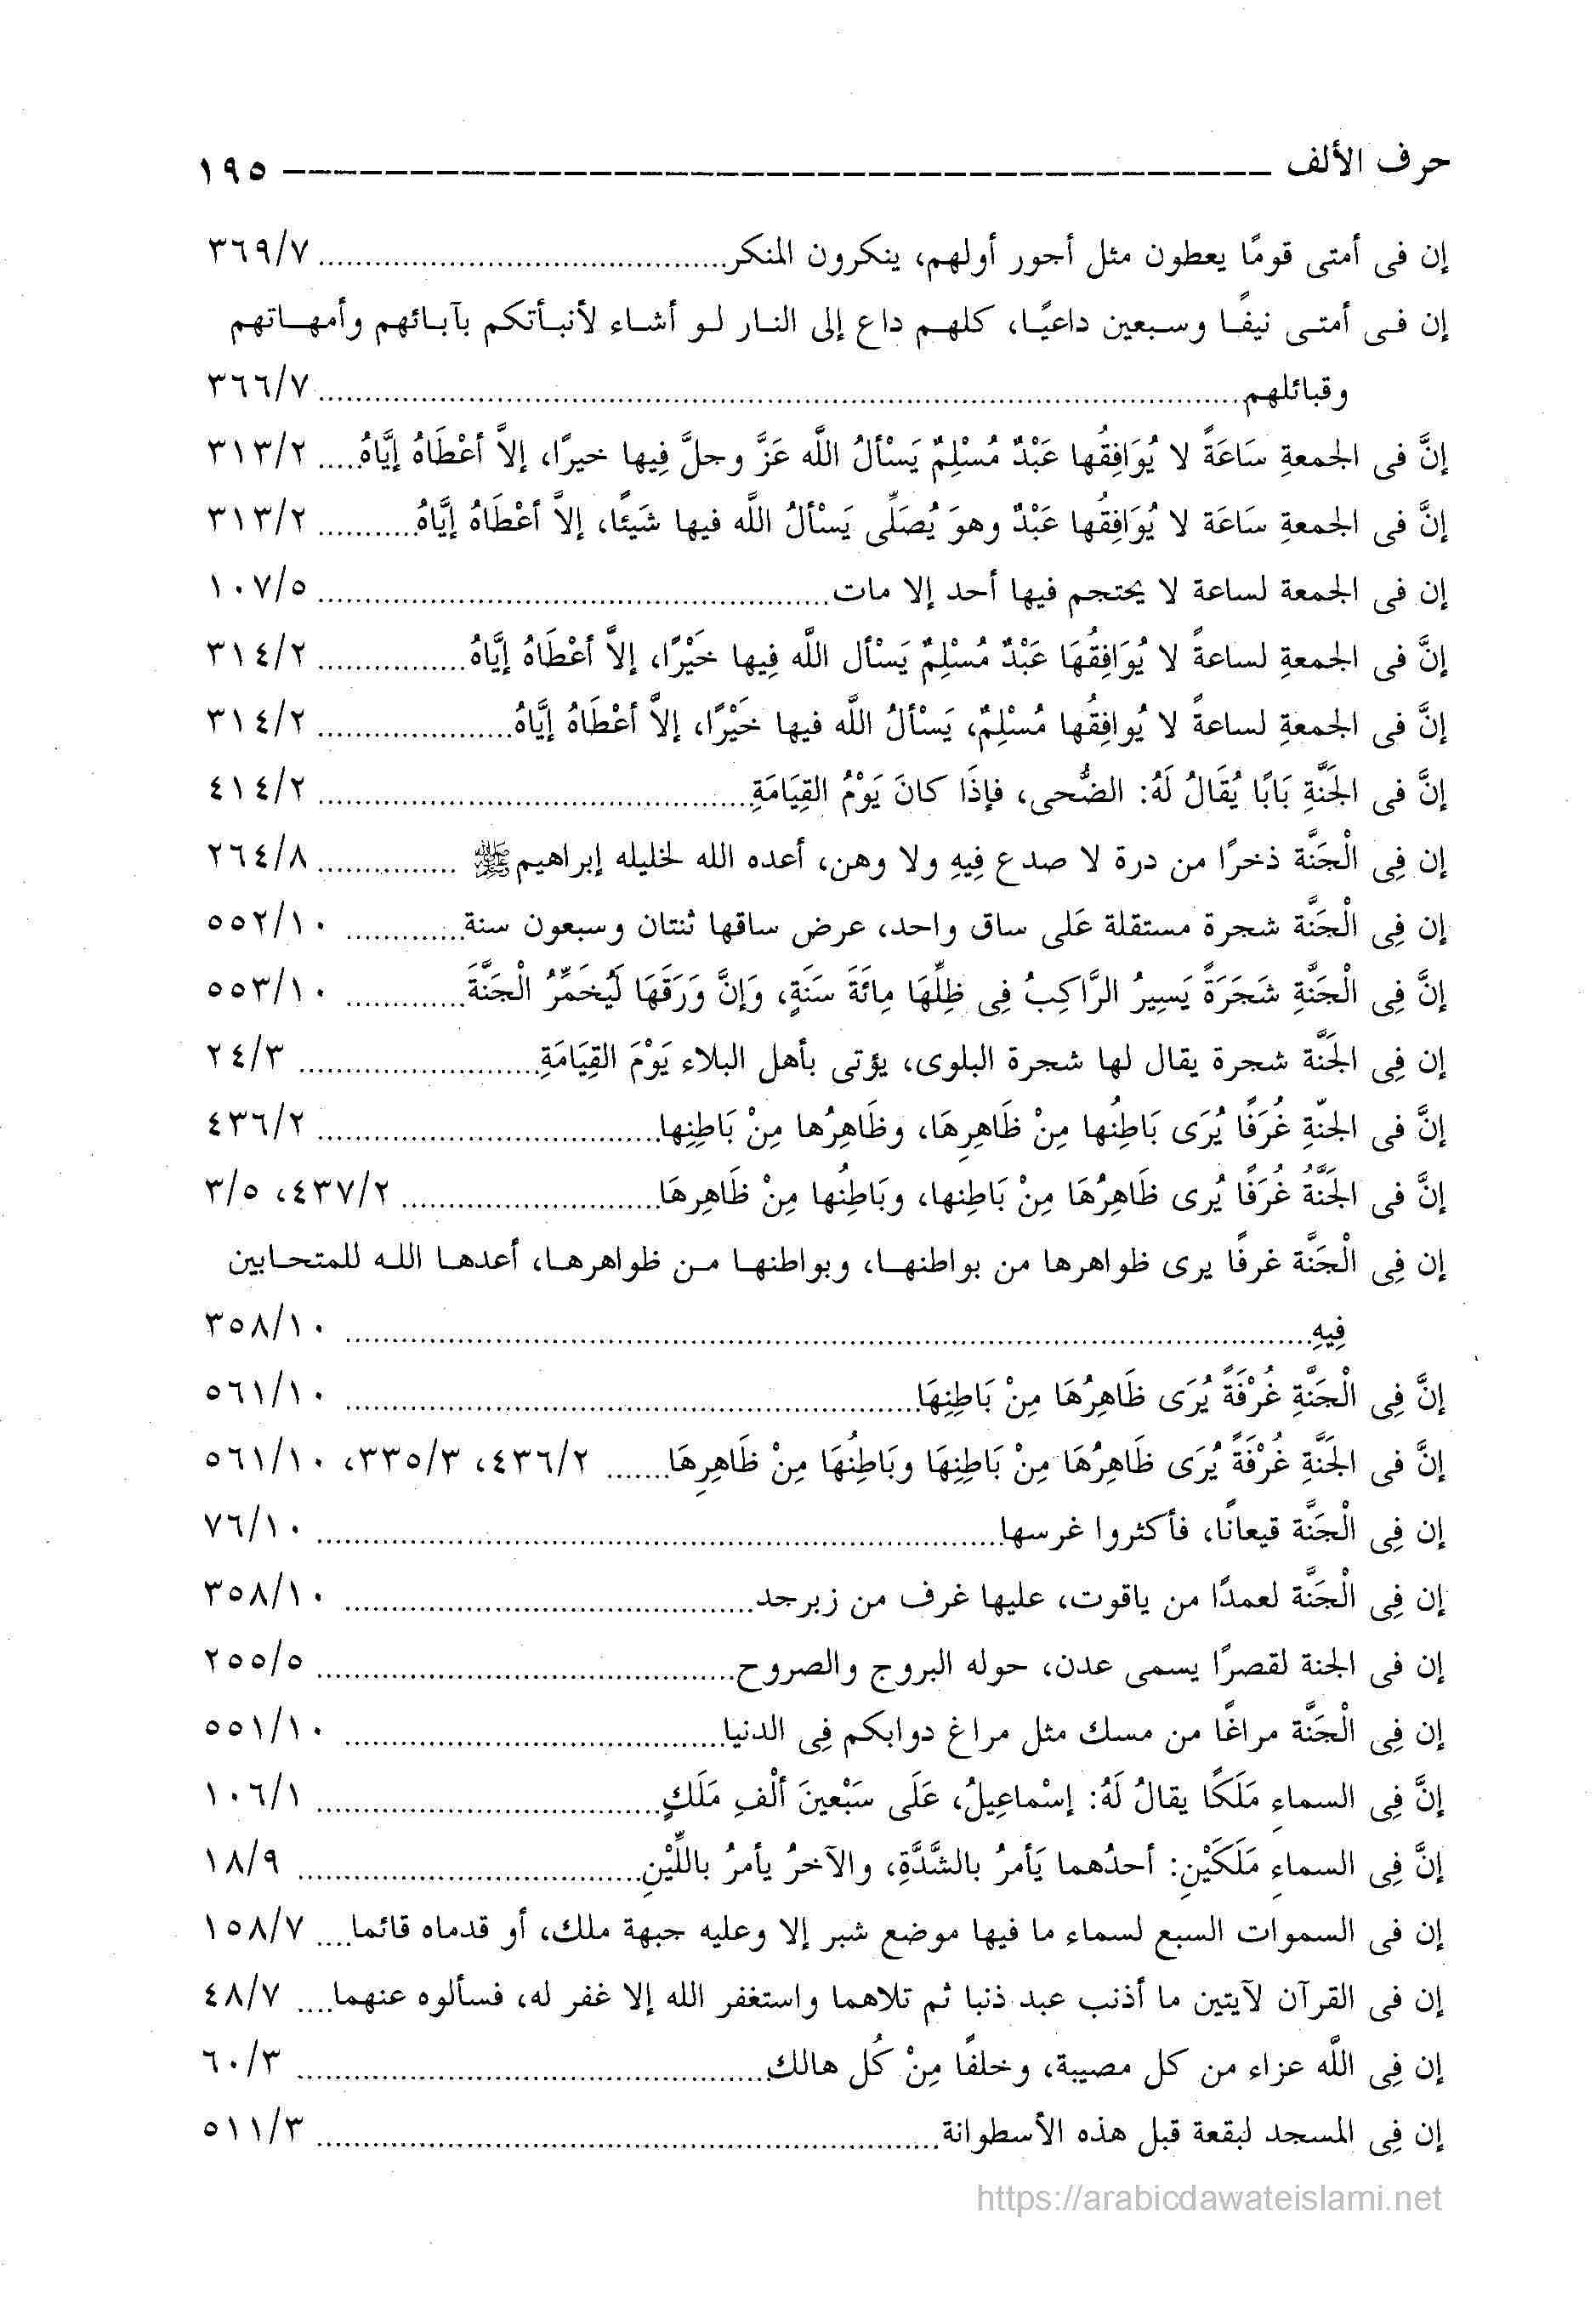 حرف الألف ــــــــــــــــــــــــــــــــــــــــ ١٩٥
إن فى أمتى قومًا يعطون مثل أجور أولهم، ينكرون المنكر............ ٣٦٩/٧
إن فـى أمتـى نيفًـا وسـبعين داعيًـا، كلهـم داع إلى النـار لـو أشـاء لأنبـأتكم بآبـائهم وأمهـاتهم
وقبائلهم............ ٣٦٦/٧
إنَّ فى الجمعةِ سَاعَةً لا يُوَافِقُها عَبْدٌ مُسْلِمٌ يَسْألُ اللَّه عَزَّ وجلَّ فِيها خيرًا، إلاَّ أعْطَاهُ إيَّاهُ..... ٣١٣/٢
إنَّ فى الجمعةِ سَاعَة لا يُوَافِقُها عَبْدٌ وهوَ يُصَلِّى يَسْألُ اللَّه فيها شَيئًا، إلاَّ أعْطَاهُ إيَّاهُ............ ٣١٣/٢
إن فى الجمعة لساعة لا يحتجم فيها أحد إلا مات............ ١٠٧/٥
إنَّ فى الجمعةِ لساعةً لا يُوَافِقُهَا عَبْدٌ مُسْلِمٌ يَسْأل اللَّه فِيها خَيْرًا، إلاَّ أعْطَاهُ إيَّاهُ............ ٣١٤/٢
إنَّ فى الجمعةِ لساعةً لا يُوافِقُها مُسْلِمٌ، يَسْألُ اللَّه فيها خَيْرًا، إلاَّ أعْطَاهُ إيَّاهُ............ ٣١٤/٢
إنَّ فى الجَنَّةِ بَابًا يُقَالُ لَهُ: الضُّحى، فإذَا كانَ يَوْمُ القِيَامَةِ............ ٤١٤/٢
إن فِى الْجَنَّة ذخرًا من درة لا صدع فِيهِ ولا وهن، أعده الله لخليله إبراهيم ﷺ ............ ٢٦٤/٨
إن فِى الْجَنَّة شجرة مستقلة عَلى ساق واحد، عرض ساقها ثنتان وسبعون سنة............ ٥٥٢/١٠
إنَّ فِى الْجَنَّةِ شَجَرَةً يَسِيرُ الرَّاكِبُ فِى ظِلِّهَا مِائَةَ سَنَةٍ، وَإنَّ وَرَقَهَا لَيُخَمِّرُ الْجَنَّةَ............ ٥٥٣/١٠
إن فِى الجَنَّة شجرة يقال لها شجرة البلوى، يؤتى بأهل البلاء يَوْمَ القِيَامَةِ............ ٢٤/٣
إنَّ فى الجنّةِ غُرَفًا يُرَى بَاطِنُها مِنْ ظَاهِرِهَا، وظَاهِرُها مِنْ بَاطِنِها............ ٤٣٦/٢
إنَّ فى الجَنَّةُ غُرَفًا يُرى ظَاهِرُهَا مِنْ بَاطِنها، وبَاطِنُها مِنْ ظَاهِرِهَا............ ٤٣٧/٢، ٣/٥
إن فِى الْجَنَّة غرفًا يرى ظواهرها من بواطنهـا، وبواطنهـا مـن ظواهرهـا، أعدهـا اللـه للمتحـابين
فِيهِ............ ٣٥٨/١٠
إنَّ فِى الْجَنَّةِ غُرْفَةً يُرَى ظَاهِرُهَا مِنْ بَاطِنِهَا............ ٥٦١/١٠
إنَّ فى الجَنَّةِ غُرْفَةً يُرَى ظَاهِرُهَا مِنْ بَاطِنِهَا وبَاطِنُهَا مِنْ ظَاهِرِهَا....... ٤٣٦/٢، ٣٣٥/٣، ٥٦١/١٠
إن فِى الْجَنَّة قيعانًا، فأكثروا غرسها............ ٧٦/١٠
إن فِى الْجَنَّة لعمدًا من ياقوت، عليها غرف من زبرجد............ ٣٥٨/١٠
إن فى الجنة لقصرًا يسمى عدن، حوله البروج والصروح............ ٢٥٥/٥
إن فِى الْجَنَّة مراغًا من مسك مثل مراغ دوابكم فِى الدنيا............ ٥٥١/١٠
إنَّ فِى السماءِ مَلَكًا يقالُ لَهُ: إسْماعِيلُ، عَلَى سَبْعينَ ألْفِ مَلَكٍ............ ١٠٦/١
إنَّ فِى السماءِ مَلَكَيْنِ: أحدُهما يَأمرُ بالشَّدَّةِ، والآخرُ يأمرُ باللِّيْنِ............ ١٨/٩
إن فى السموات السبع لسماء ما فيها موضع شبر إلا وعليه جبهة ملك، أو قدماه قائما.... ١٥٨/٧
إن فى القرآن لآيتين ما أذنب عبد ذنبا ثم تلاهما واستغفر الله إلا غفر له، فسألوه عنهما.... ٤٨/٧
إن فِى اللَّه عزاء من كل مصيبة، وخلفًا مِنْ كُل هالك............ ٦٠/٣
إن فِى المسجد لبقعة قبل هذه الأسطوانة............ ٥١١/٣
https://arabicdawateislami.net